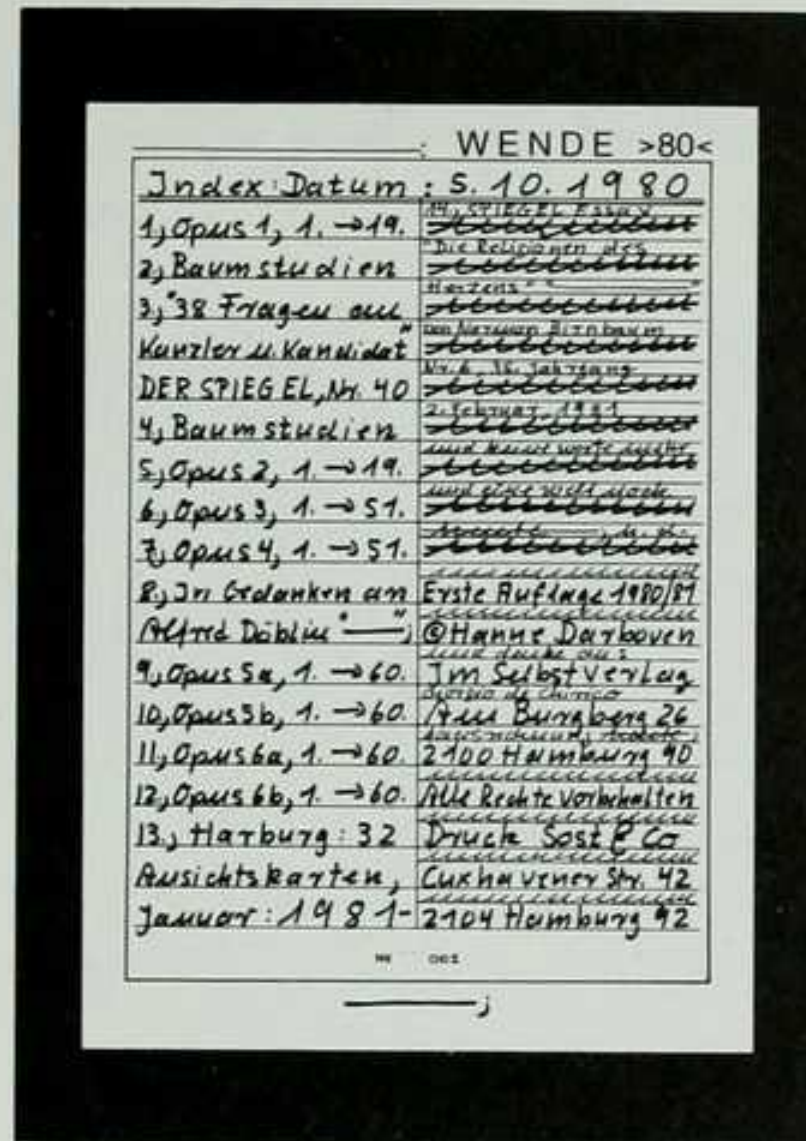 ; WENDE >80<
Index: Datum : 5. 10. 1980
1, Opus 1, 1. → 19.
2, Baumstudien
3, "38 Fragen an
Kanzler u. Kandidat"
DER SPIEGEL, Nr. 40
4, Baumstudien
5, Opus 2, 1. → 19.
6, Opus 3, 1. → 51.
7, Opus 4, 1. → 51.
8, In Gedanken an
Alfred Döblin "——";
9, Opus 5a, 1. → 60.
10, Opus 5b, 1. → 60.
11, Opus 6a, 1. → 60.
12, Opus 6b, 1. → 60.
13., Harburg: 32
Ansichtskarten,
Januar: 1981-
14., SPIEGEL Essay
"Die Religionen des
Herzens" "——"
von Norman Birnbaum
Nr. 6, 35. Jahrgang
2. Februar, 1981
und keine worte mehr
und eine welt noch
Erste Auflage 1980/81
© Hanne Darboven
und danke an:
Im Selbstverlag
giorgio de chirico
Am Burgberg 26
2100 Hamburg 90
Alle Rechte vorbehalten
Druck Sost & Co
Cuxhavener Str. 42
2104 Hamburg 92
——;